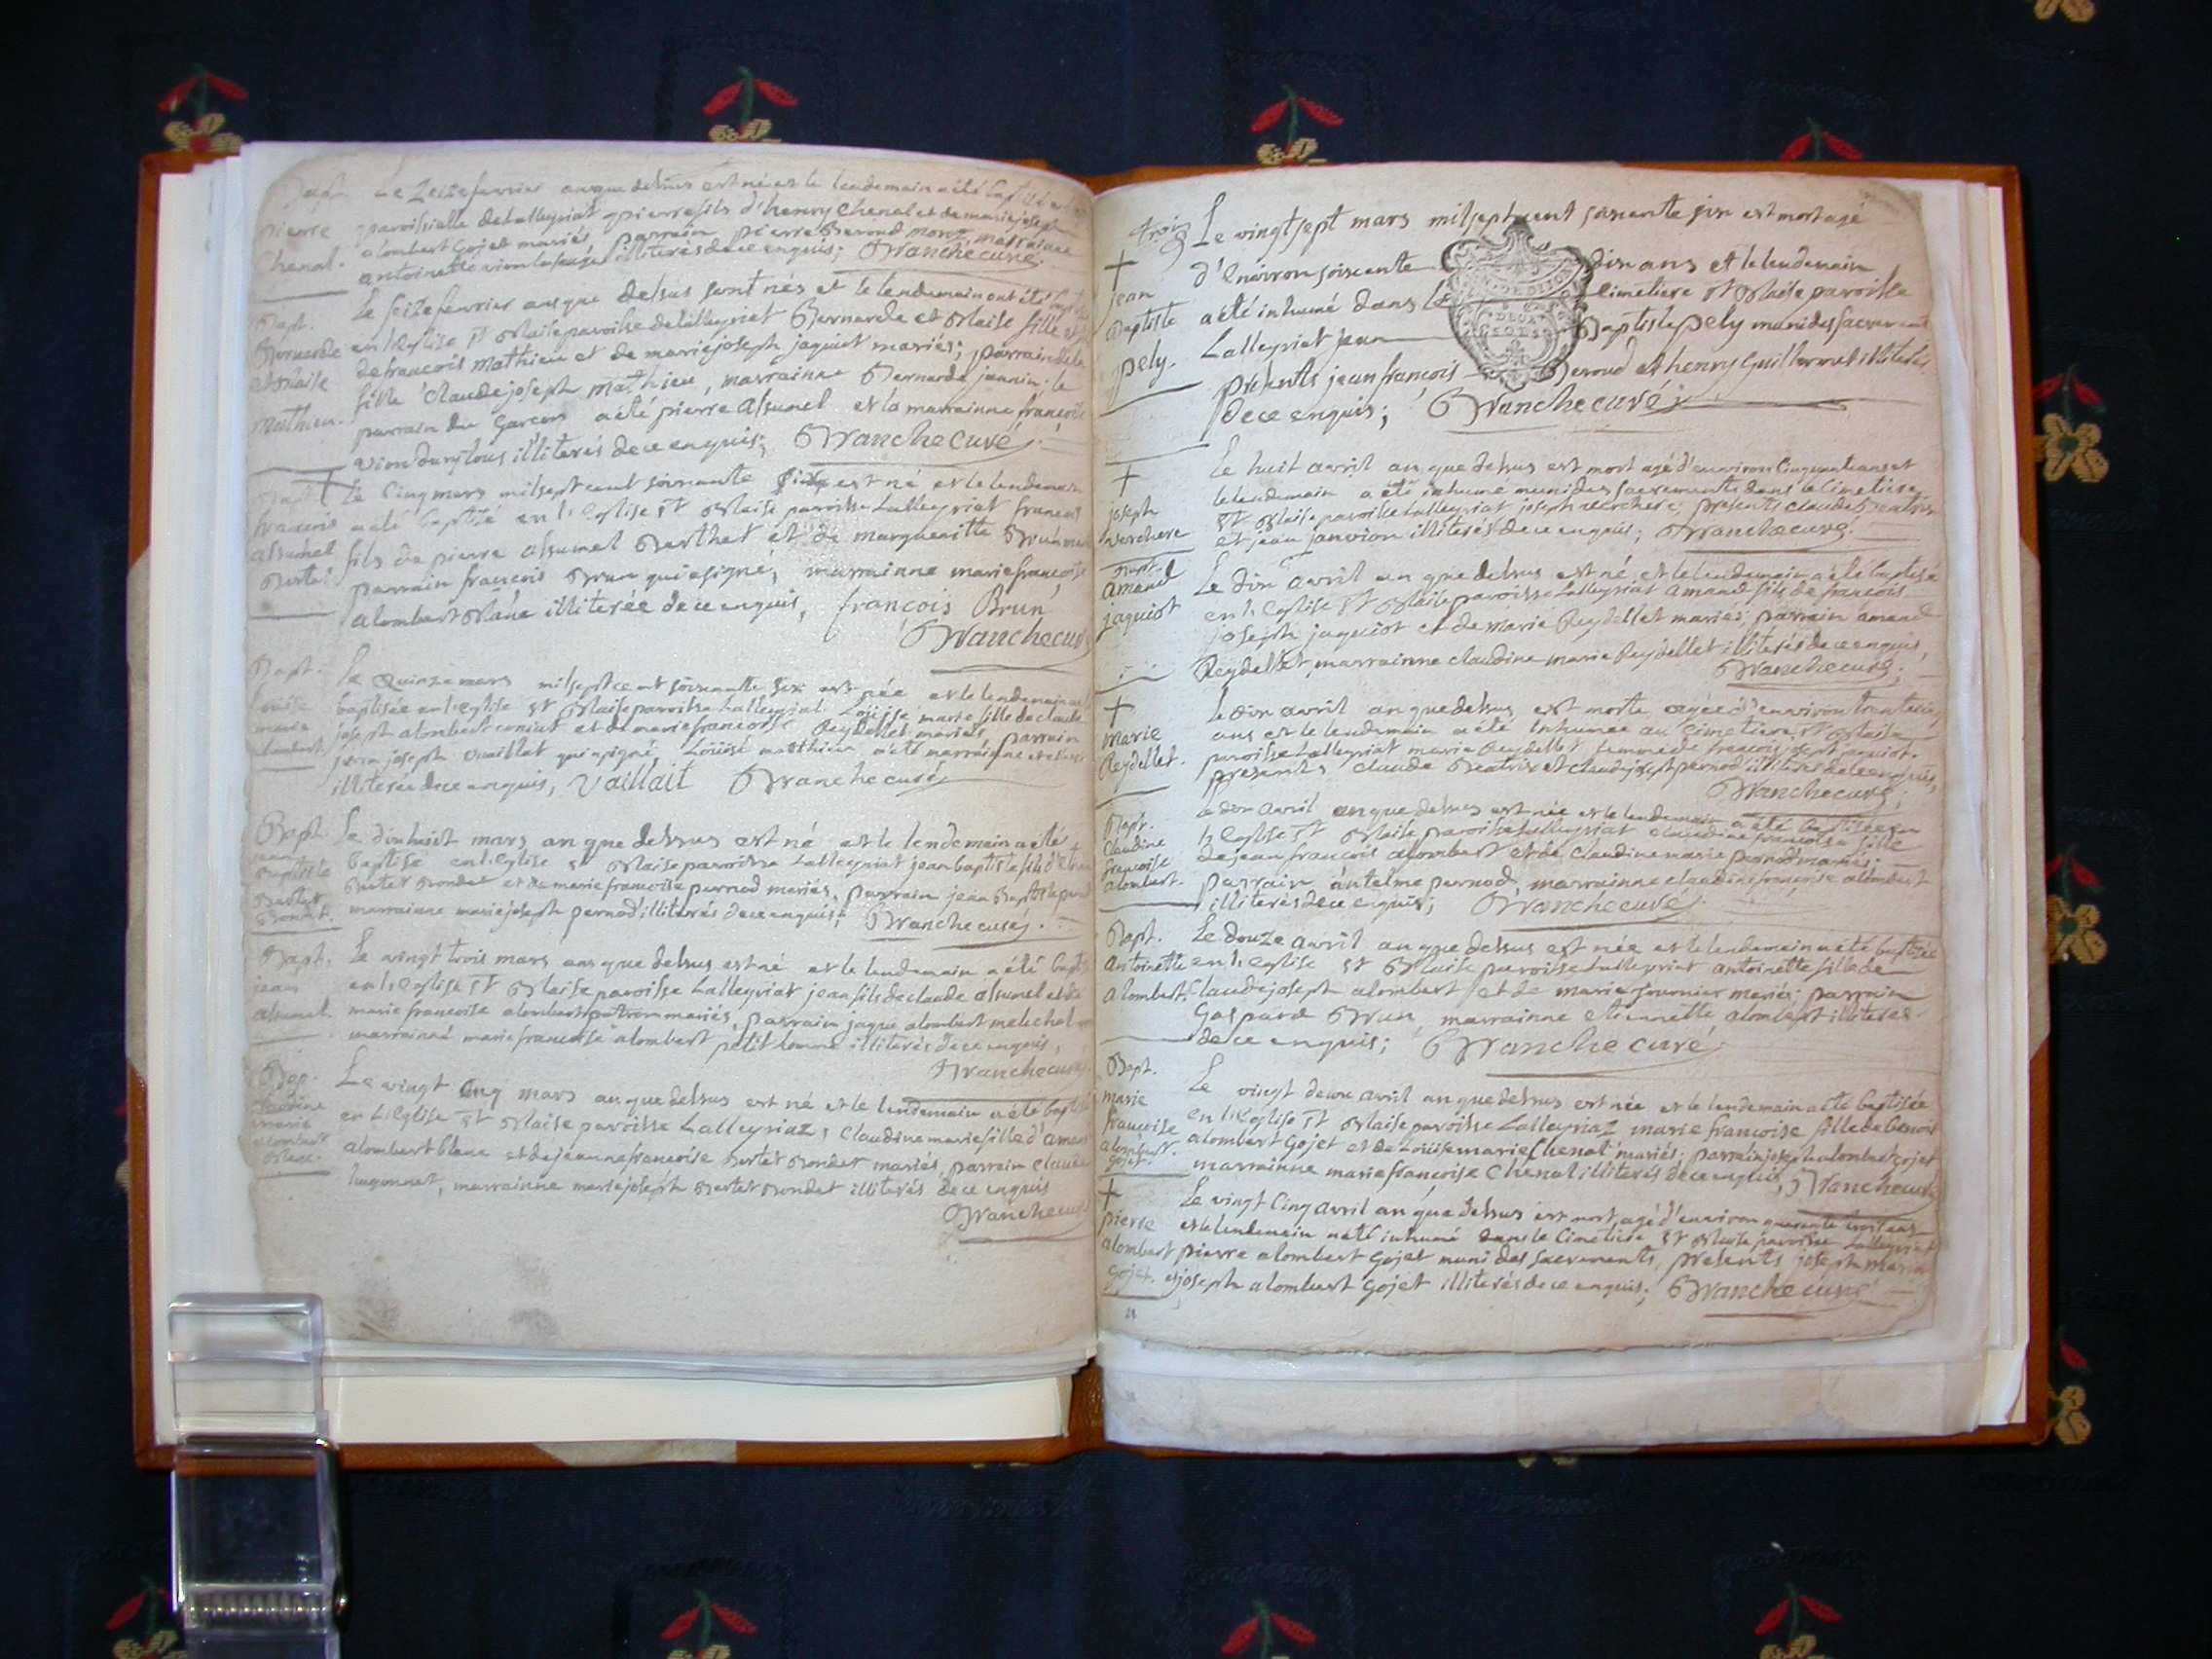 Bapt. Le Zeize fevrier an que dessus est né et le lendemain a été baptisé
pierre paroissialle de Lalleyriat pierre fils d'henry Chenal et de marie joseph
Chenal. alombert Gojet mariés, parrain pierre Beroud marrainne
antoinette illiterés de ce enquis; Branche curé.
Bapt. Le seize fevrier an que dessus sont nés et le lendemain ont été
Bernarde en l'Eglise St Blaise paroisse de Lalleyriat Bernarde et Blaise fille et
et Blaise de francois Mathieu et de marie joseph jaquiot mariés; parrain de la
fille Claude joseph Mathieu, marrainne Bernarde le
Mathieu. parrain du Garçon a été pierre Alsumel et la marrainne françoise
tous illiterés de ce enquis; Branche Curé.
Bapt Le Cinq mars milsept cent soixante six est né et le lendemain
francois a été baptisé en l'Eglise St Blaise paroisse Lalleyriat francois
alsumel fils de pierre alsumel Berthet et de margueritte
Bertet parrain françois Brun qui a signé; marrainne marie françoise
alombert Blanc illiterée de ce enquis, françois Brun
Branche curé
Bapt. Le Quinze mars milsept cent soixante six est née et le lendemain a été
Louise baptisée en l'eglise St Blaise paroisse Lalleyriat Loüise marie fille de claude
marie joseph alombert et de marie francoise Reydellet mariés parrain
alombert jean joseph Vuaillat qui a signé, Loüise matthieu a été marrainne
illiterée de ce enquis, Vaillait Branche curé
Bapt. Le dixhuict mars an que dessus est né et le lendemain a été
jean Baptiste baptisé en l'Eglise St Blaise paroisse Lalleyriat jean baptiste fils
Bertet Bondet et de marie francoise pernod mariés, parrain jean Baptiste
Bondet. marrainne marie joseph pernod illiterés de ce enquis; Branche curé.
Bapt. Le vingt trois mars an que dessus est né et le lendemain a été
jean en l'Eglise St Blaise paroisse Lalleyriat jean fils de claude alsumel et de
alsumel. marie francoise alombert mariés, parrain jaque alombert melchol
marrainne marie francoise alombert petit illiterés de ce enquis,
Branche curé
Bap. Le vingt Cinq mars an que dessus est né et le lendemain a été baptisé
Claudine marie en L'Eglise St Blaise paroisse Lalleyriaz, Claudine marie fille d'amand
alombert Blanc. alombert blanc et de jeanne francoise Bertet Bondet mariés, parrain Claude
hugonnet, marrainne marie joseph Bertet Bondet illiterés de ce enquis
Branche curé
trois Le vingt sept mars milsept cent soixante six est mort agé
+ d'Environ soixante dix ans et le lendemain
jean a été inhumé dans le Cimetiere St Blaise paroisse
Baptiste Lalleyriat jean Baptiste pely muni des sacrements
pely. présents jean françois Beroud et henry Guillermet illiterés
de ce enquis; Branche curé;
+ Le huit avril an que dessus est mort agé d'environ Cinquante ans et
le lendemain a été inhumé muni des sacrements dans le Cimetiere
joseph St Blaise paroisse Lalleyriat joseph verchere; présents Claude Beatrix
verchere et jean janvion illiterés de ce enquis; Branche curé.
Bapt. Le dix avril an que dessus est né et le lendemain a été baptisé
amand en l'Eglise St Blaise paroisse Lalleyriat amand fils de francois
jaquiot joseph jaquiot et de marie Reydellet mariés; parrain amand
Reydellet, marrainne claudine marie Reydellet illiterés de ce enquis,
Branche curé;
+ Le dix avril an que dessus est morte agée d'environ
marie ans et le lendemain a été inhumée au Cimetiere St Blaise
Reydellet. paroisse Lalleyriat marie Reydellet femme de francois joseph jaquiot.
présents claude Beatrix et claude joseph pernod illiterés de ce enquis,
Branche curé;
Bapt. dix avril an que dessus est née et le lendemain a été baptisée en
Claudine l'Eglise St Blaise paroisse Lalleyriat claudine francoise fille
françoise de jean francois alombert et de claudine marie pernod mariés;
alombert. parrain antelme pernod, marrainne claudine françoise alombert
illiterés de ce enquis; Branche curé
Bapt. Le douze avril an que dessus est née et le lendemain a été baptisée
Antoinette en l'Eglise St Blaise paroisse Lalleyriat antoinette fille de
alombert. Claude joseph alombert et de marie fournier mariés; parrain
Gaspard Brun, marrainne etiennette alombert illiterés
de ce enquis; Branche curé
Bapt. Le vingt deux avril an que dessus est née et le lendemain a été baptisée
marie en l'Eglise St Blaise paroisse Lalleyriaz marie francoise fille de benoit
françoise alombert Gojet et de Loüise marie Chenal mariés; parrain joseph alombert gojet
alombert gojet. marrainne marie françoise Chenal illiterés de ce enquis; Branche curé
+ Le vingt Cinq avril an que dessus est mort agé d'environ quarante trois ans
pierre et le lendemain a été inhumé dans le Cimetiere St Blaise paroisse Lalleyriat
alombert pierre alombert Gojet muni des sacrements, présents joseph
gojet. et joseph alombert Gojet illiterés de ce enquis; Branche curé